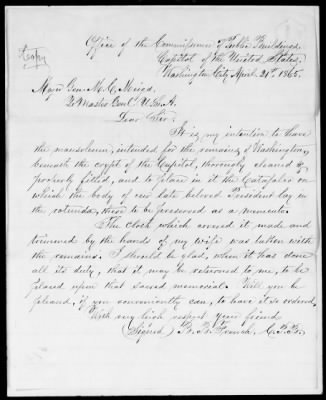 Copy
Office of the Commissioner of Public Buildings,
Capitol of the United States.
Washington City April 21st 1865.
Major Gen. M. C. Meigs,
Qr Master Genl. U.S.A.
Dear Sir:
It is my intention to have
the mausoleum, intended for the remains of Washington,
beneath the crypt of the Capitol, thoroughly cleaned &
properly fitted, and to place in it the Catafalco on
which the body of our late beloved President lay in
the rotunda, there to be preserved as a memento.
The Cloth which covered it made and
trimmed by the hands of my wife was taken with
the remains. I should be glad, when it has done
all its duty, that it may be returned to me, to be
placed upon that sacred memorial. Will you be
pleased, if you conveniently can, to have it so ordered.
With very high respect your friend
(Signed) B. B. French, C.P.B.